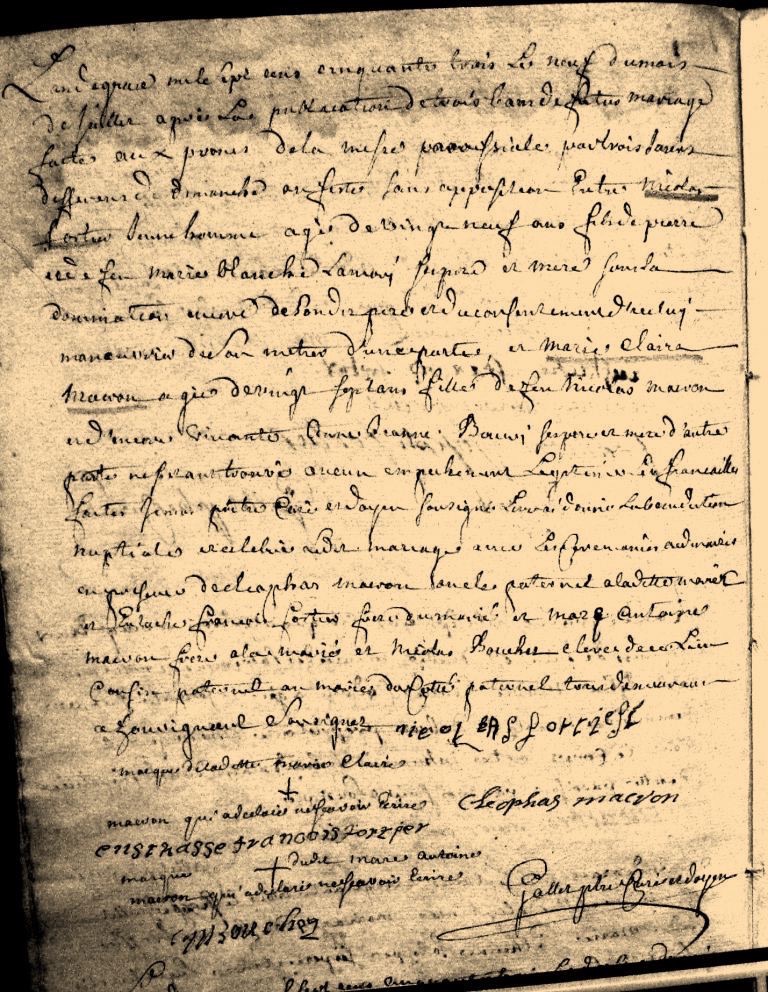 L'an de grace mile sept cens cinquante trois le neuf du mois
de juillet apres la publication de trois bans de futur mariage
faites aux prones de la messe paroissiale par trois jours
differens de dimanche ou festes sans opposition Entre Nicolas
fortier jeune homme agé de vingt neuf ans fils de pierre
et de feu marie blanche Lamoy ses pere et mere sous la
domination encore de son dit pere et du consentement d'iceluy
manouvrier de son metier d'une parte, et Marie Claire
Macron agée de vingt sept ans fille de feu Nicolas macron
et d'encore vivante Anne Jeanne ses pere et mere d'autre
parte ne s'etant trouvé aucun empechement Legitime Les fiancailles
faites Je mre pretre Curé et doyen sousigné Leur ai donné la benediction
nuptiale et celebré Ledit mariage avec les Ceremonies
en presence de cleophas macron oncle paternel a la ditte mariée
et Eustache francois fortier frere du marié et marc Antoine
macron frere a la mariée et Nicolas Bouchez clerc de ce Lieu
Cousin paternel au mariés du Coté paternel tous demeurant
a soussignez nicolas fortier
marque de la ditte marie Claire
macron qui a declaré ne scavoir Ecrire cleophas macron
eustasse francois fortier
marque dudit marc antoine
macron qui a declaré ne scavoir Ecrire
Gallet ptre Curé et doyen
N Bouchez